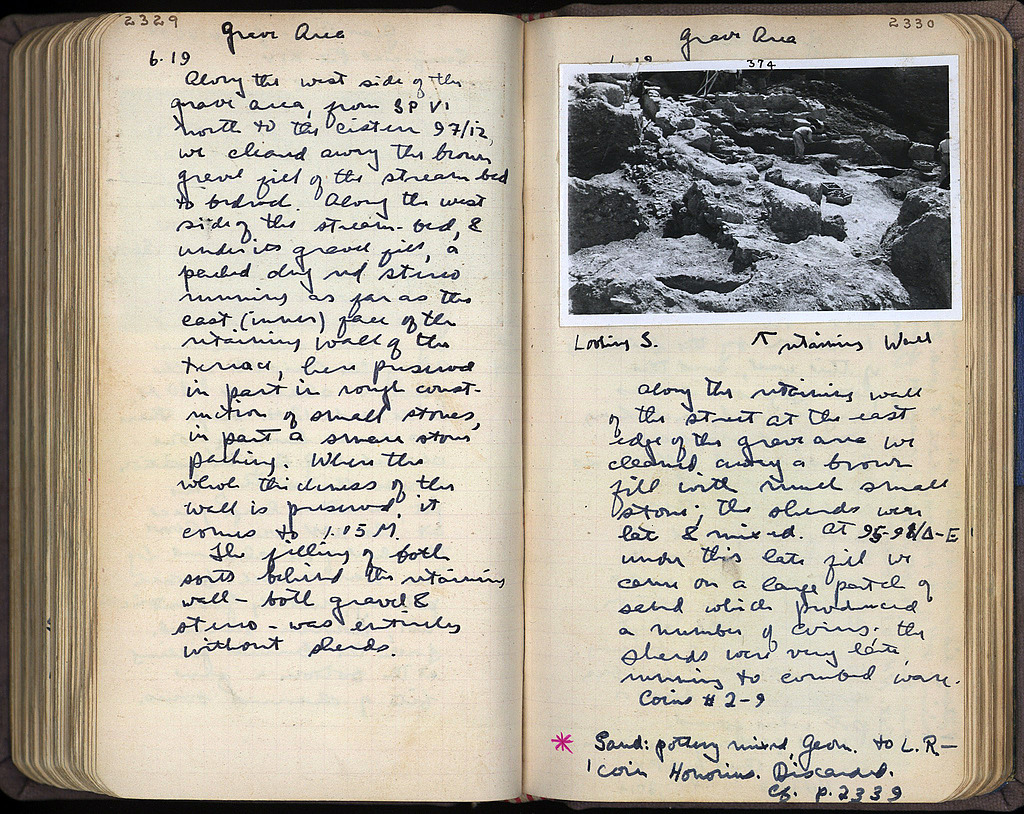 2329
Grave Area
6.19
Along the west side of the
grave area, from SP VI
north to the cistern 97/12,
we cleaned away the brown
gravel fill of the stream bed
to bedrock. Along the west
side of the stream-bed, &
under its gravel fill, a
packed dry red stereo
running as far as the
east (inner) face of the
retaining wall of the
terrace, here preserved
in part in rough const-
ruction of small stones,
in part a small stone
packing. Where the
whole thickness of the
wall is preserved, it
comes to 1.05 M.
The filling of both
sorts behind the retaining
wall - both gravel &
stereo - was entirely
without sherds.
2330
Grave Area
374
Looking S. ↑ retaining Wall
Along the retaining wall
of the street at the east
edge of the grave area we
cleaned away a brown
fill with much small
stone; the sherds were
late & mixed. At 95-98/Δ-E
under this late fill we
came on a large patch of
sand which produced
a number of coins; the
sherds were very late,
running to combed ware.
Coins # 2-9
* Sand: pottery mixed, Geom. to L.R-
1 coin Honorius. Discarded.
cf. p. 2339